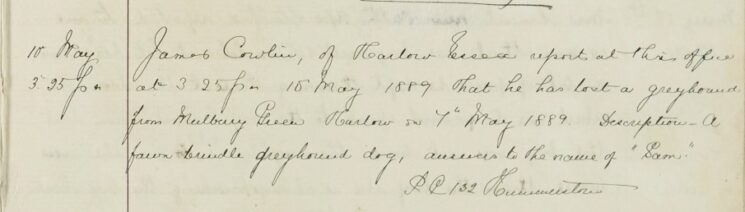 10 May James Cowlin, of Harlow Essex report at this office
3 25 pm at 3 25 pm 10 May 1889 that he has lost a greyhound
from Mulbury Green Harlow on 7th May 1889. Description - A
fawn brindle greyhound dog, answers to the name of "Sam."
P.C. 132 Hummerstone